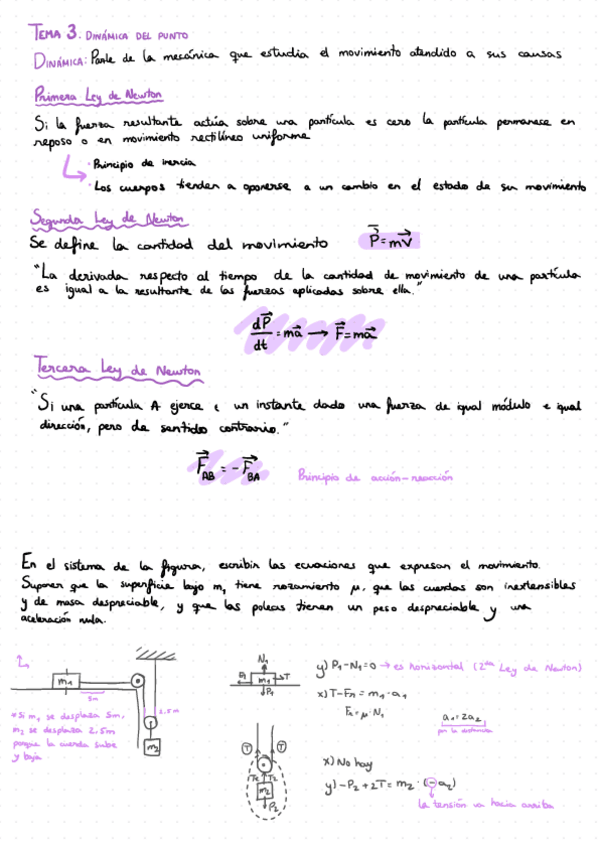 TEMA 3. DINÁMICA DEL PUNTO
DINÁMICA: Parte de la mecánica que estudia el movimiento atendido a sus causas
Primera Ley de Newton
Si la fuerza resultante actúa sobre una partícula es cero la partícula permanese en
reposo o en movimiento rectilíneo uniforme
· Principio de inercia
· Los cuerpos tienden a oponerse a un cambio en el estado de su movimiento
Segunda Ley de Newton
Se define la cantidad del movimiento P⃗=mv⃗
"La derivada respecto al tiempo de la cantidad de movimiento de una partícula
es igual a la resultante de las fuerzas aplicadas sobre ella."
dP⃗/dt = ma⃗ → F⃗=ma⃗
Tercera Ley de Newton
"Si una partícula A ejerce e un instante dado una fuerza de igual módulo e igual
dirección, pero de sentido contrario."
F⃗AB = -F⃗BA Principio de acción-reacción
En el sistema de la figura, escribir las ecuaciones que expresan el movimiento.
Suponer que la superficie bajo m₁ tiene rozamiento μ, que las cuerdas son inextensibles
y de masa despreciable, y que las poleas tienen un peso despreciable y una
aceleración nula.
m₁
5m
2.5m
m₂
*Si m₁ se desplaza 5m,
m₂ se desplaza 2.5m
porque la cuerda sube
y baja
N₁
m₁
T
P₁
T
T
T₂
m₂
P₂
y) P₁-N₁=0 → es horizontal (2da Ley de Newton)
x) T-FR = m₁·a₁
FR = μ·N₁
a₁=2a₂
por la distancia
x) No hay
y) -P₂+2T = m₂·(-a₂)
La tensión va hacia arriba